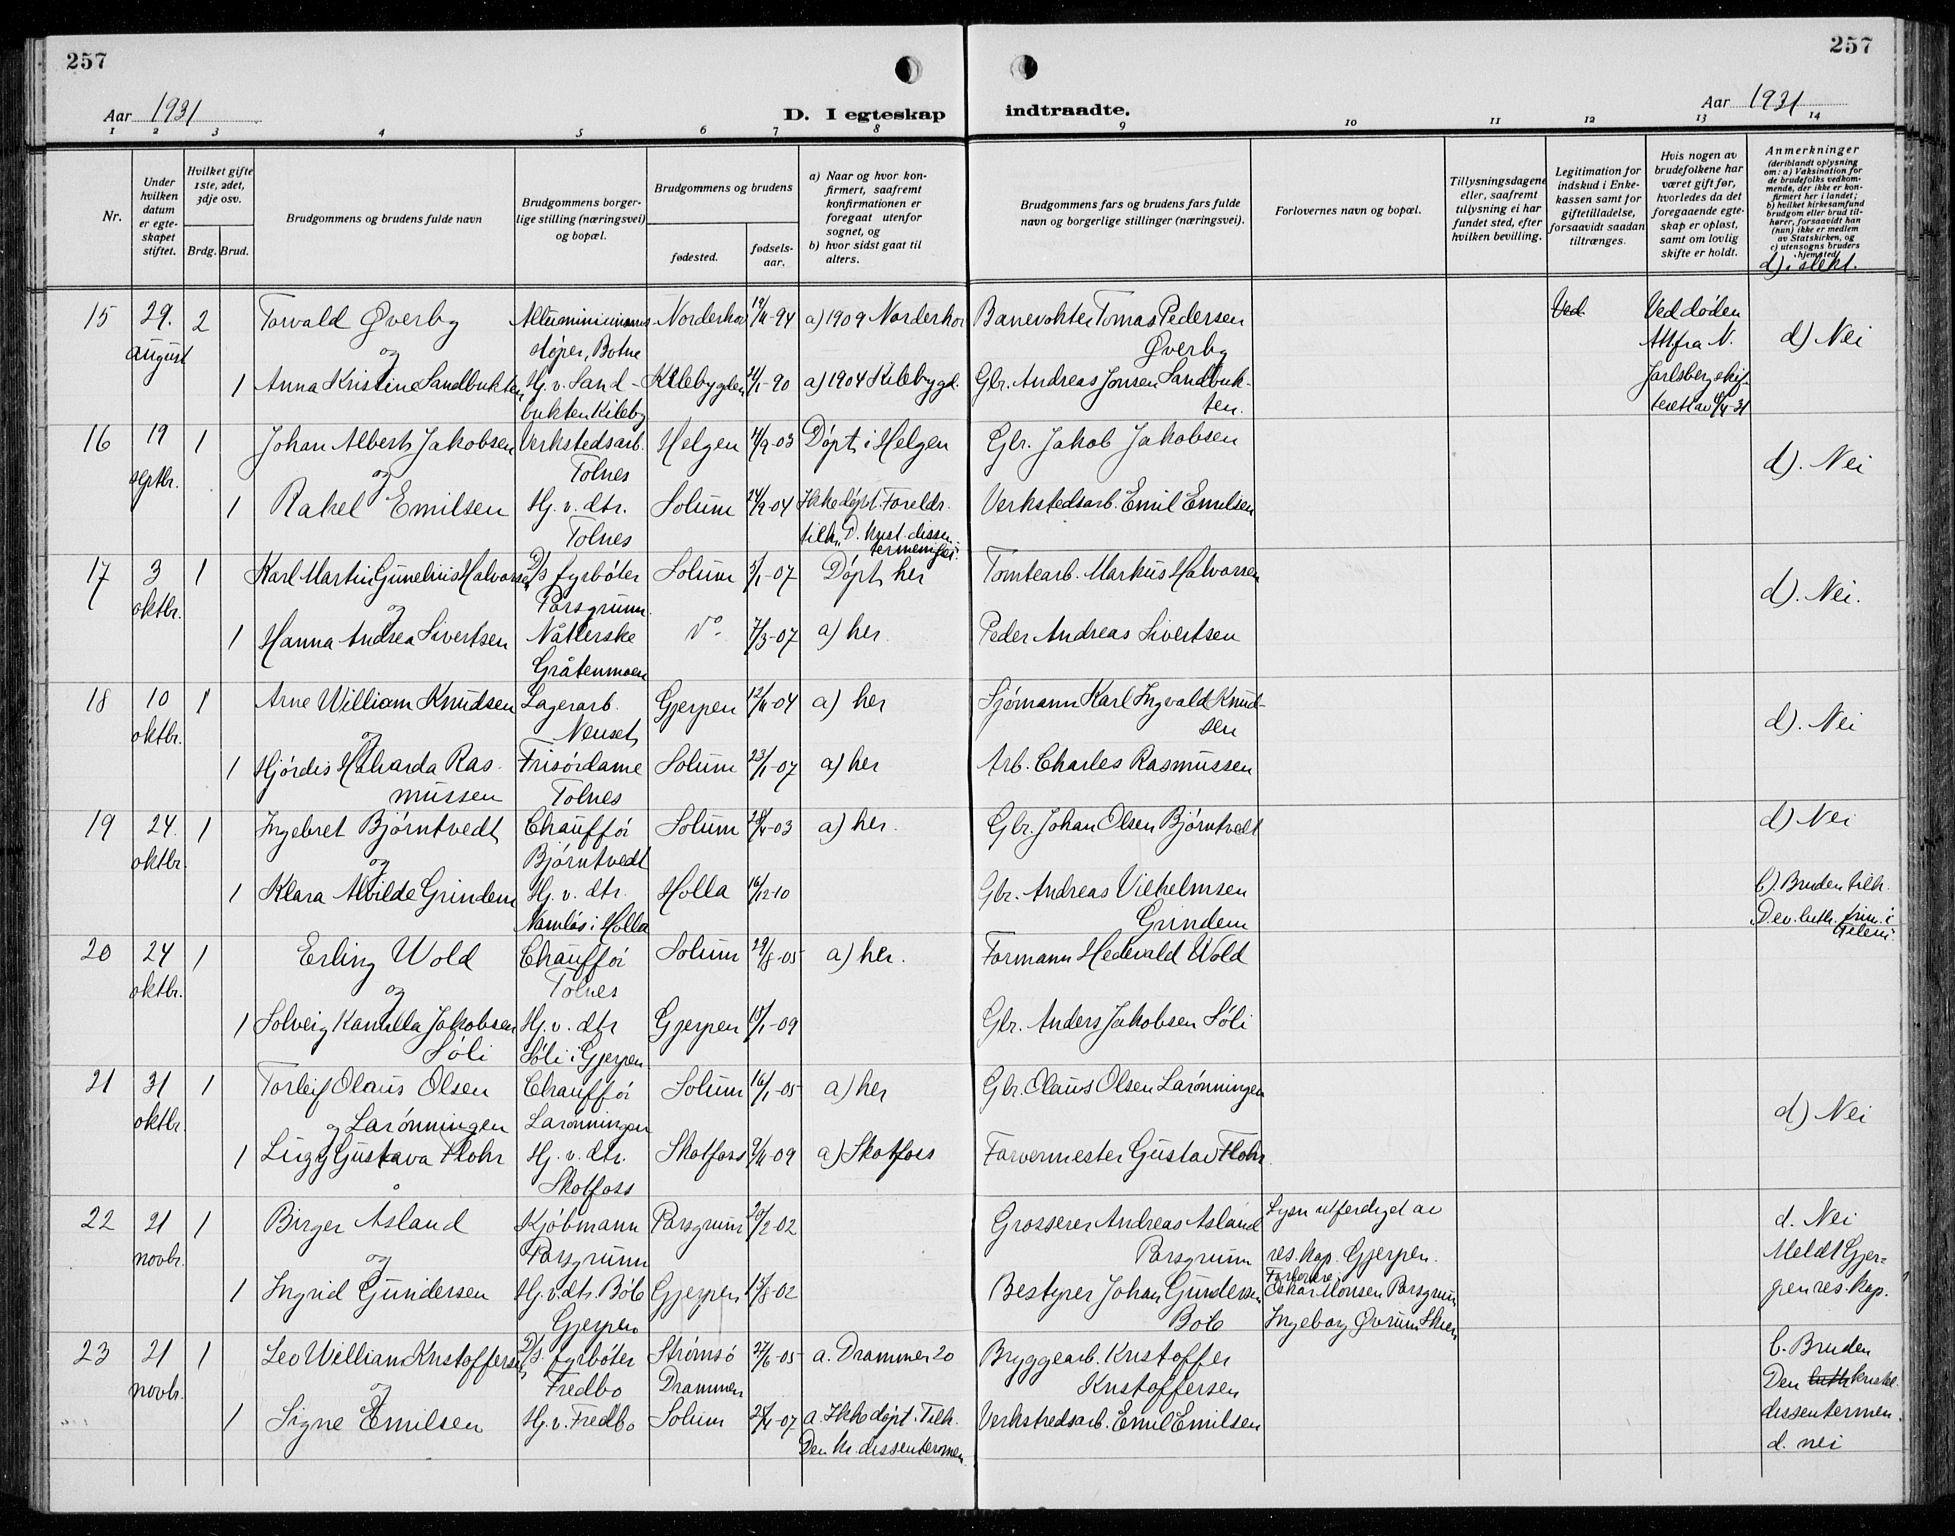 257
257
Aar 1931
D. I egteskap
indtraadte.
Aar 1931
1 2 3 4 5 6 7 8 9 10 11 12 13 14
Nr.
Under hvilken datum er egteskapet stiftet.
Hvilket gifte 1ste, 2det, 3dje osv.
Brdg. Brud.
Brudgommens og brudens fulde navn
Brudgommens borgerlige stilling (næringsvei) og bopæl.
Brudgommens og brudens
fødested.
fødselsaar.
a) Naar og hvor konfirmert, saafremt konfirmationen er foregaat utenfor sognet, og
b) hvor sidst gaat til alters.
Brudgommens fars og brudens fars fulde navn og borgerlige stillinger (næringsvei).
Forlovernes navn og bopæl.
Tillysningsdagene eller, saafremt tillysning ei har fundet sted, efter hvilken bevilling.
Legitimation for indskud i Enkekassen samt for giftetilladelse, forsaavidt saadan tiltrænges.
Hvis nogen av brudefolkene har været gift før, hvorledes da det foregaaende egteskap er opløst, samt om lovlig skifte er holdt.
Anmerkninger
(deriblandt oplysning om: a) Vaksination for de brudefolks vedkommende, der ikke er konfirmert her i landet; b) hvilket kirkesamfund brudgom eller brud tilhører, forsaavidt han (hun) ikke er medlem av Statskirken, og c) utensogns bruders hjemsted.
d) i slekt.
15 29. august 2 Torvald Øverby Aluminiumsstøper, Botne Norderhov 19/11-94 a) 1909 Norderhov Banevokter Tomas Pedersen Øverby Ved Ved døden Att fra N. Jarlsberg skifterett av 9/4-31 d) Nei
og
1 Anna Kristine Sandbukten Hj. v. Sandbukten Kileby Kilebygden -90 a) 1904 Kilebygd. Gbr. Andreas Jonsen Sandbukten.
16 19 septbr. 1 Johan Albert Jakobsen Verkstedsarb. Tolnes Helgen 11/9-03 Døpt i Helgen Gbr. Jakob Jakobsen d). Nei
og
1 Rakel Emilsen Hj. v. dtr. Tolnes Solum 24/9-04 Ikke døpt. Foreldr. tilh. D. krist. dissentermenighet. Verkstedsarb. Emil Emilsen
17 3 oktbr. 1 Karl Martin Gunelius Halvorsen D/s fyrbøter Porsgrunn. Solum 5/1-07 Døpt her Tomtearb. Markus Halvorsen d). Nei.
og
1 Hanna Andrea Sivertsen Nåtlerske Gråtenmoen do- 7/3-07 a) her. Peder Andreas Sivertsen
18 10 oktbr. 1 Arne William Knudsen Lagerarb. Nenset Gjerpen 12/11-04 a) her Sjømann Karl Ingvald Knudsen d). Nei
og
1 Hjørdis Halvarda Rasmussen Frisørdame Tolnes Solum 23/1-07 a) her Arb. Charles Rasmussen
19 24. oktbr. 1 Ingebret Bjørntvedt Chauffør Bjørntvedt Solum -03 a) her. Gbr. Johan Olsen Bjørntvedt d) Nei
og
1 Klara Alvilde Grindem Hj. v. dtr. Namløs i Holla Holla 16/12-10 Gbr. Andreas Vilhelmsen Grindem b). Bruden tilh. D ev. luth. frim. i
20 24 oktbr. 1 Erling Wold Chauffør Tolnes Solum 29/8-05 a) her. Formann Hedevald Wold
og
1 Solveig Kamilla Jakobsen Søli Hj. v. dtr Søli i Gjerpen Gjerpen 15/1-09 Gbr. Anders Jakobsen Søli
21 31 oktbr. 1 Torleif Olaus Olsen Larønningen Chauffør Larønningen Solum 16/1-05 a) her Gbr. Olaus Olsen Larønningen d) Nei
og
1 Lizzy Gustava Flohr Hj. v. dtr. Skotfoss Skotfoss 9/11-09 a) Skotfoss Farvermester Gustav Flohr
22 21 novbr. 1 Birger Åsland Kjøbmann Porsgrunn Porsgrunn 20/2-02 Grosserer Andreas Åsland Porsgrunn Lysn utferdiget av res. kap. Gjerpen. d. Nei Meldt Gjerpen res. kap.
og
1 Ingrid Gundersen Hj. v. dtr. Bøle Gjerpen Gjerpen 15/8-02 Bestyrer Johan Gundersen Bøle Forlovere: Oskar Monsen Porsgrunn Ingeborg Øvrum Skien
23 21 novbr. 1 Leo William Kristoffersen D/s. fyrbøter Fredbo Strømsø Drammen 27/6-05 a. Drammen 20 Bryggearb. Kristoffer Kristoffersen b. Bruden Den luth kristel. dissentermen.
og
1 Signe Emilsen Hj. v. Fredbo Solum -07 a. Ikke døpt. Tilh. Den kr. dissentermen. Verkstedsarb. Emil Emilsen d. nei